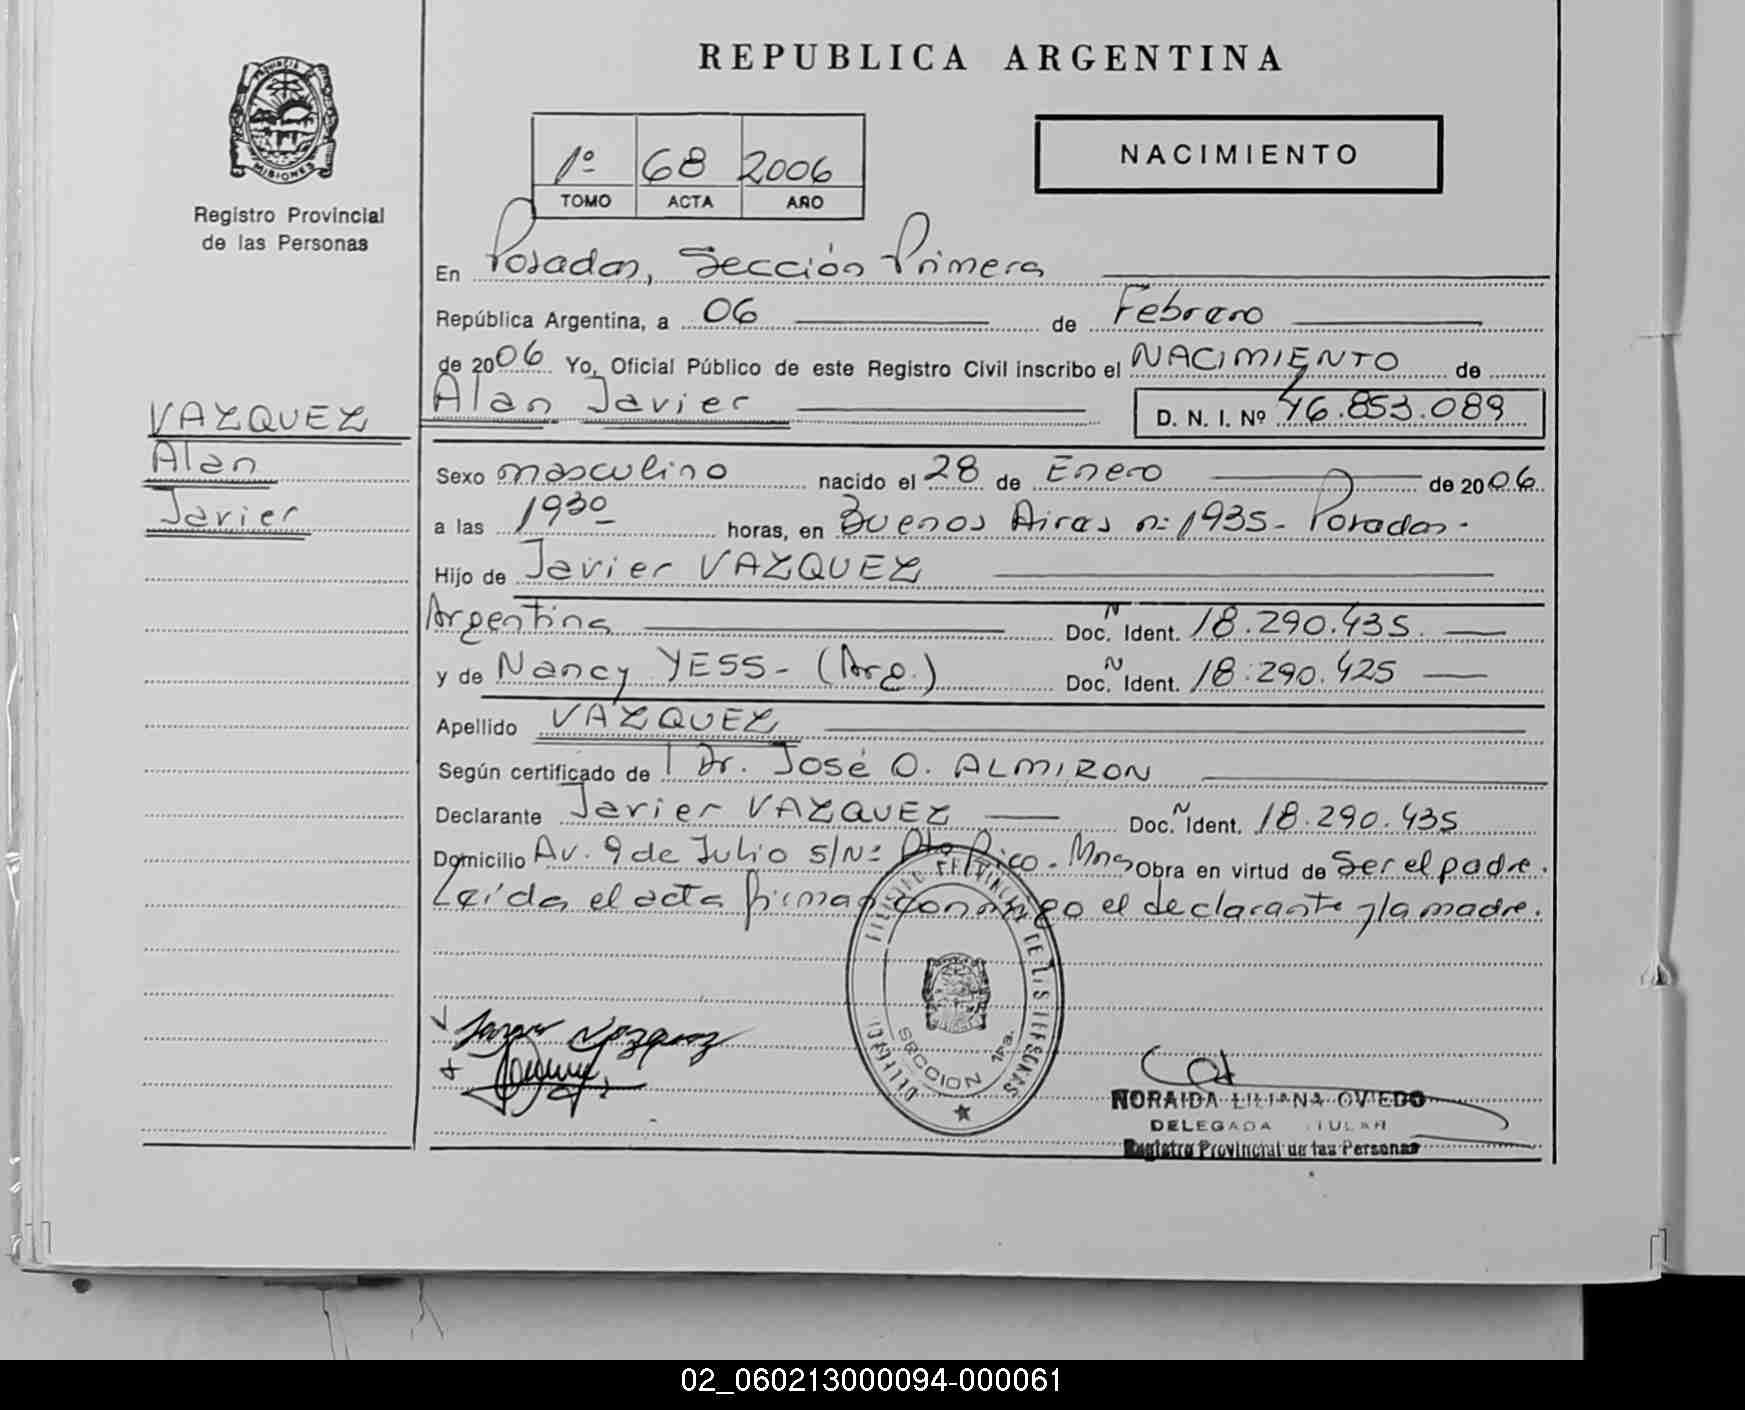 REPUBLICA ARGENTINA
PROVINCIA DE
MISIONES
Registro Provincial
de las Personas
1º 68 2006
TOMO ACTA AÑO
NACIMIENTO
En Posadas, Sección Primera
República Argentina, a 06 de Febrero
de 2006 Yo, Oficial Público de este Registro Civil inscribo el NACIMIENTO de
Alan Javier D. N. I. Nº 46.853.089
VAZQUEZ
Alan
Javier
Sexo masculino nacido el 28 de Enero de 2006
a las 1930 horas, en Buenos Aires nº 1935 - Posadas.
Hijo de Javier VAZQUEZ
Argentina Doc. N Ident. 18.290.435
y de Nancy YESS - (Arg.) Doc. N Ident. 18.290.425
Apellido VAZQUEZ
Según certificado de Dr. José O. ALMIRON
Declarante Javier VAZQUEZ Doc. N Ident. 18.290.435
Domicilio Av. 9 de Julio S/Nº Pto Rico - Mnes Obra en virtud de Ser el padre.
Leída el acta firman conmigo el declarante y la madre.
REGISTRO PROVINCIAL DE LAS PERSONAS
SECCION 1ra.
Javier Vazquez
NORAIDA LILIANA OVIEDO
DELEGADA TITULAR
Registro Provincial de las Personas
02_060213000094-000061